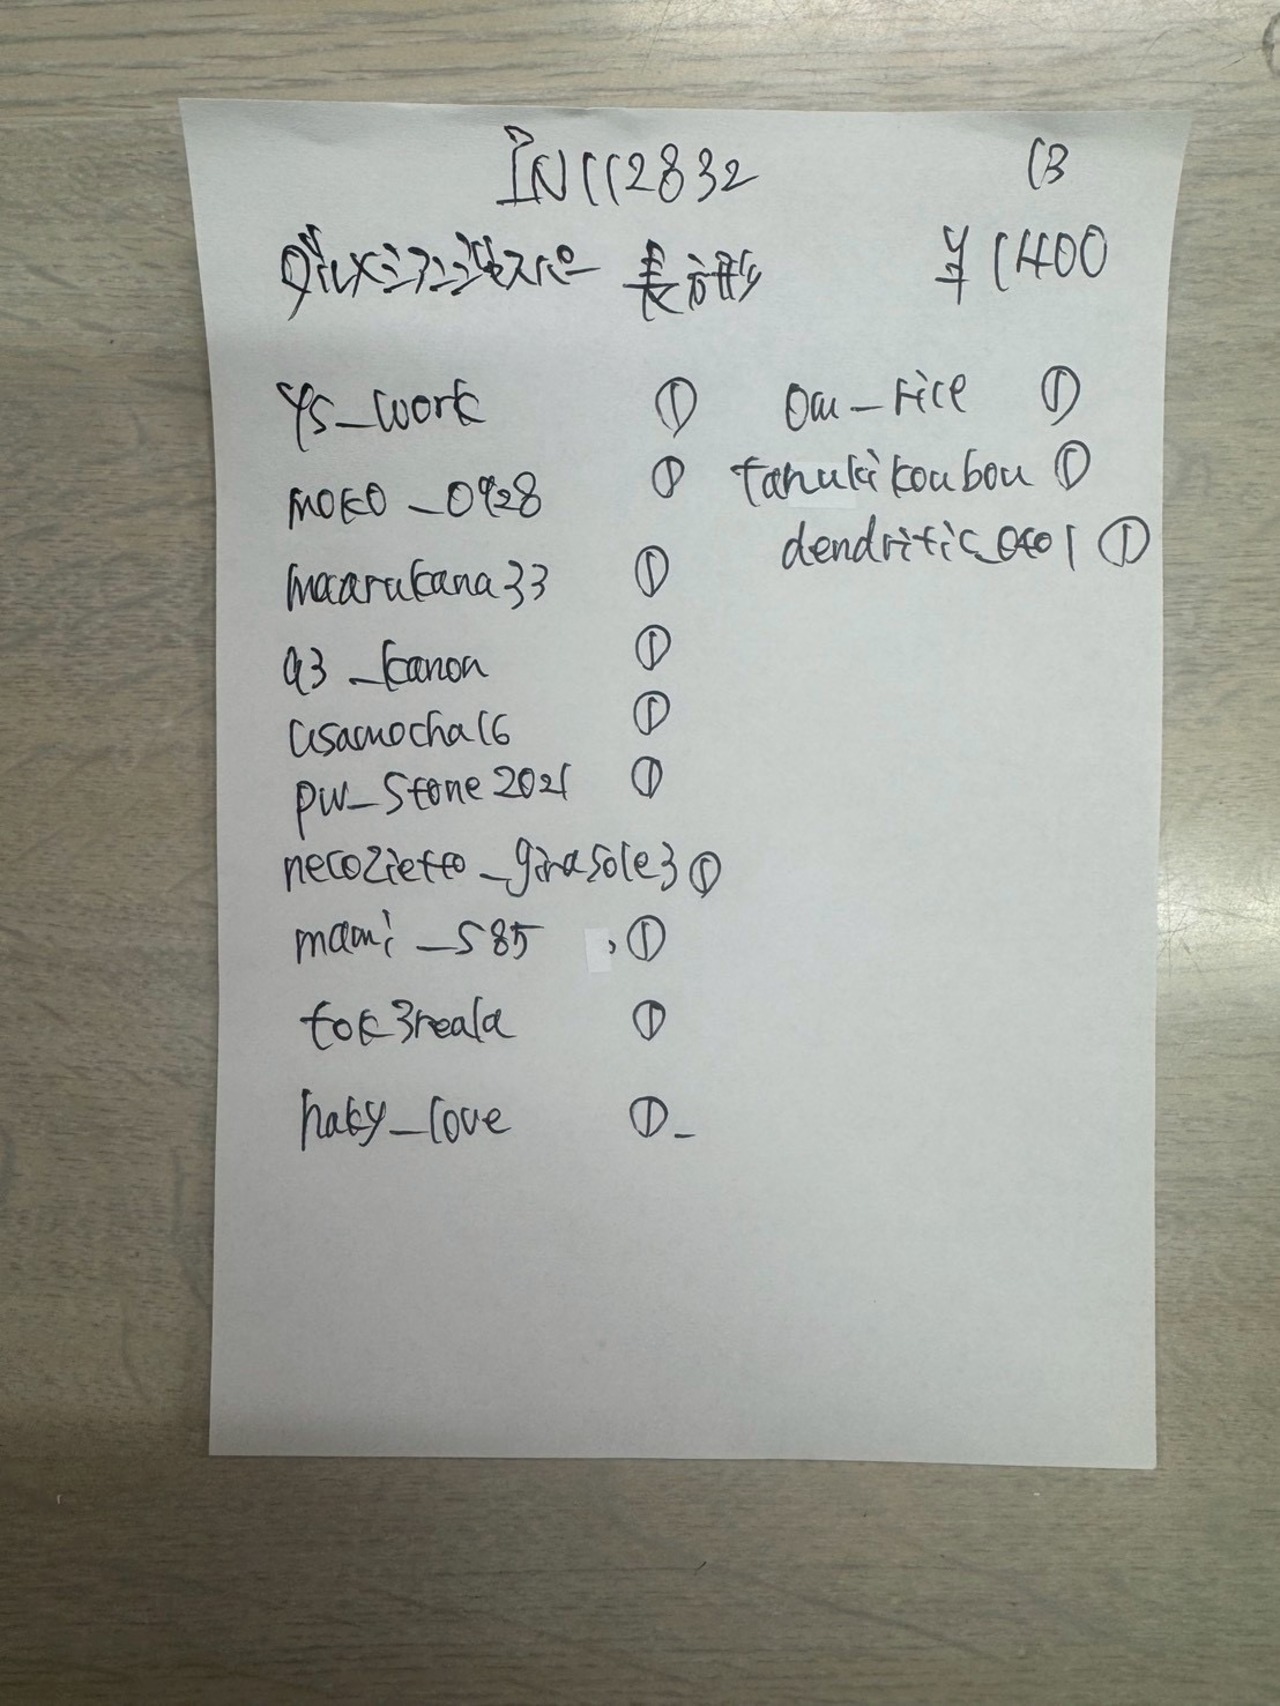 IN112832 13
長方形 ¥1400
ys_work ①
moko_0928 ①
maarukana33 ①
93_kanon ①
usamocha16 ①
pw_stone2021 ①
necozietto_girasole3 ①
mami_s85 ①
tok3reala ①
haky_love ①
ou_rice ①
tanukikoubou ①
①